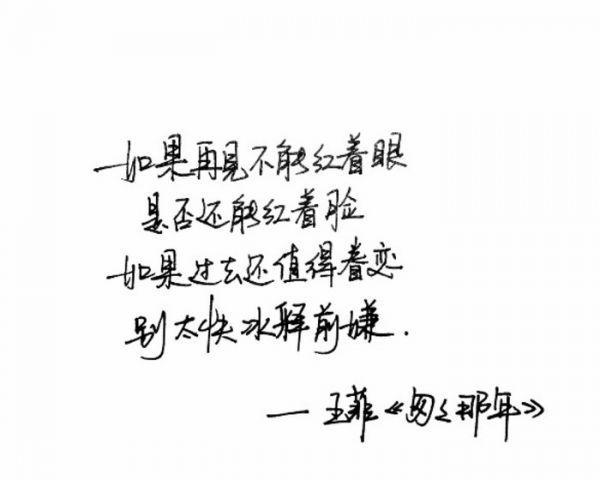 如果再见不能红着眼
是否还能红着脸
如果过去还值得眷恋
别太快冰释前嫌.
—王菲《匆々那年》